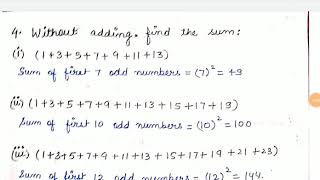 4. Without adding, find the sum:
(i) (1+3+5+7+9+11+13)
Sum of first 7 odd numbers = (7)² = 49
(ii) (1+3+5+7+9+11+13+15+17+19)
Sum of first 10 odd numbers = (10)² = 100
(iii) (1+3+5+7+9+11+13+15+17+19+21+23)
Sum of first 12 odd numbers = (12)² = 144.